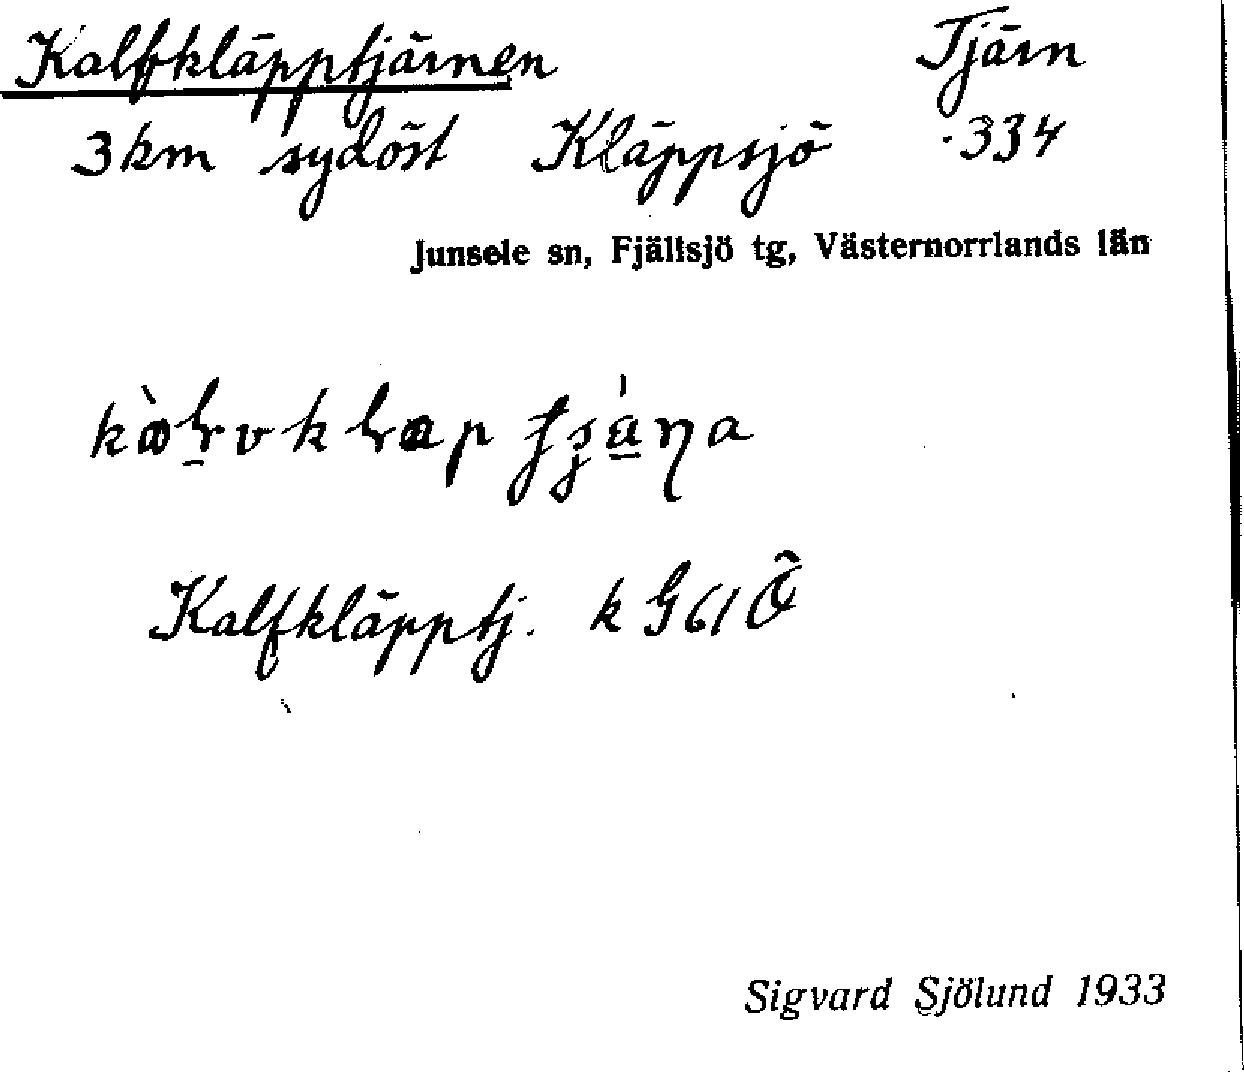 Kalfkläpptjärnen Tjärn
3 km sydöst Kläppsjö -334
Junsele sn, Fjällsjö tg, Västernorrlands län
Kalfkläpptj. k G61Ö
Sigvard Sjölund 1933